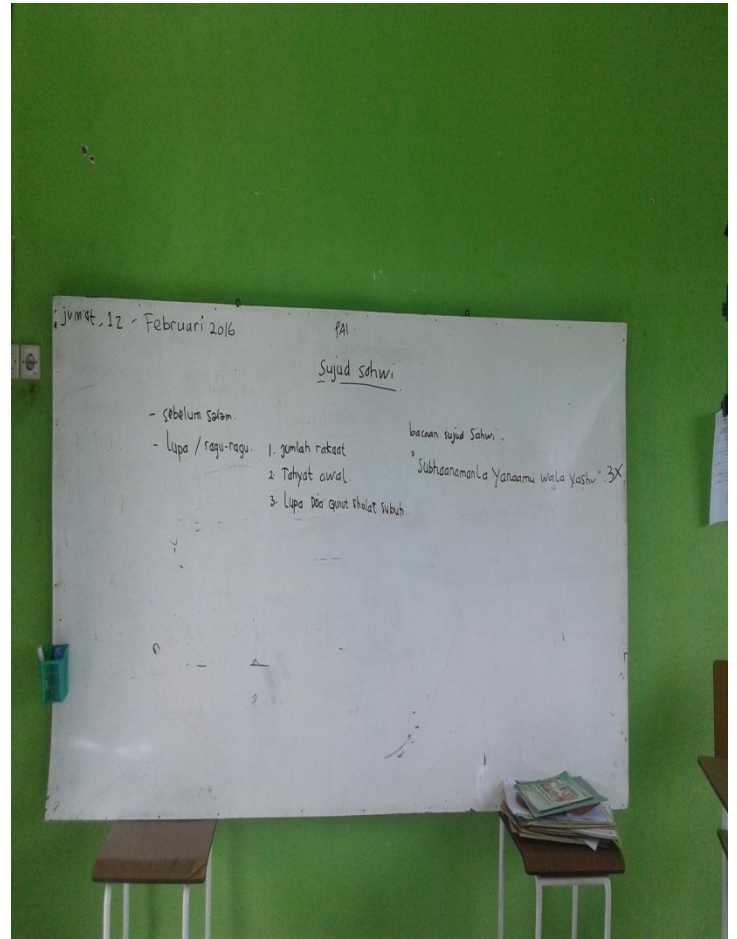 jum'at, 12 - Februari 2016
PAI
Sujud sahwi
- sebelum salam.
- Lupa / ragu-ragu.
1. jumlah rakaat
2. Tahyat awal.
3. Lupa Doa qunut sholat subuh.
bacaan sujud Sahwi.
"Subhaanamanla Yanaamu wala Yashu". 3X